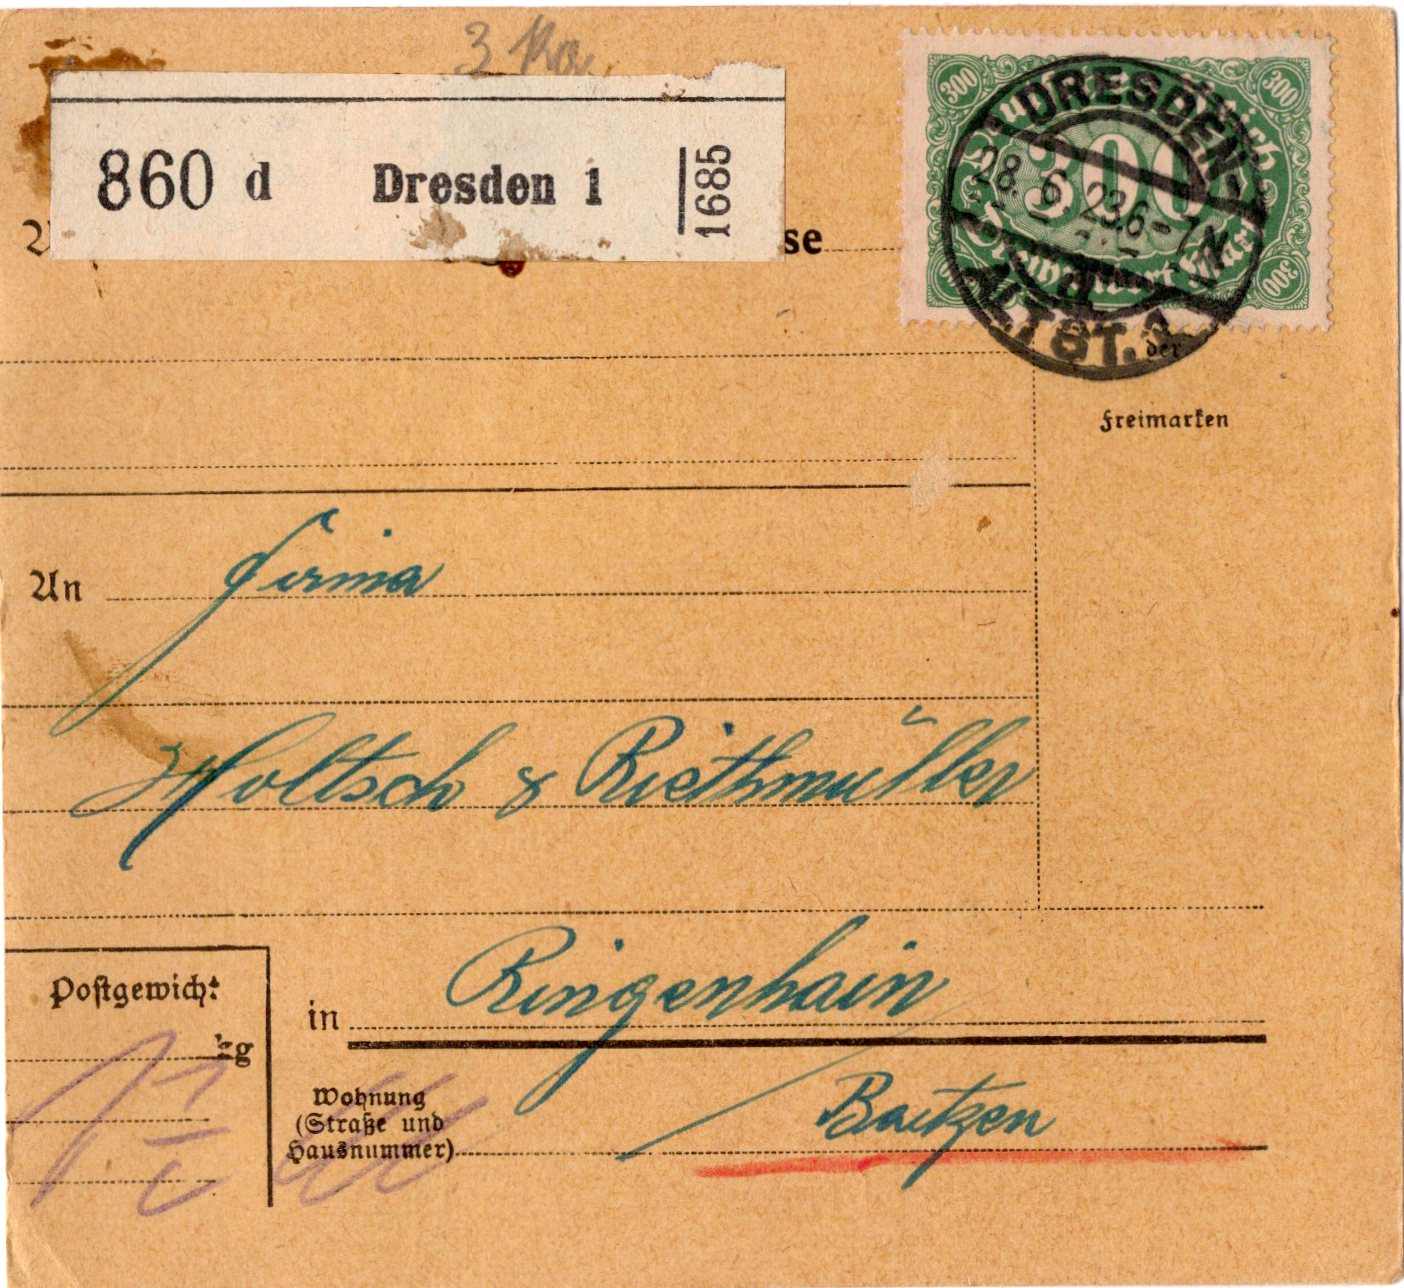 3
860 d Dresden 1 1685
se
300 300 300
DRESDEN-
28. 6. 23. 6-7 N.
ALTST. 1
der
Freimarken
An Firma
Holtsch & Riethmüller
Postgewicht
kg
in Ringenhain
Wohnung
(Straße und
Hausnummer)
Bautzen